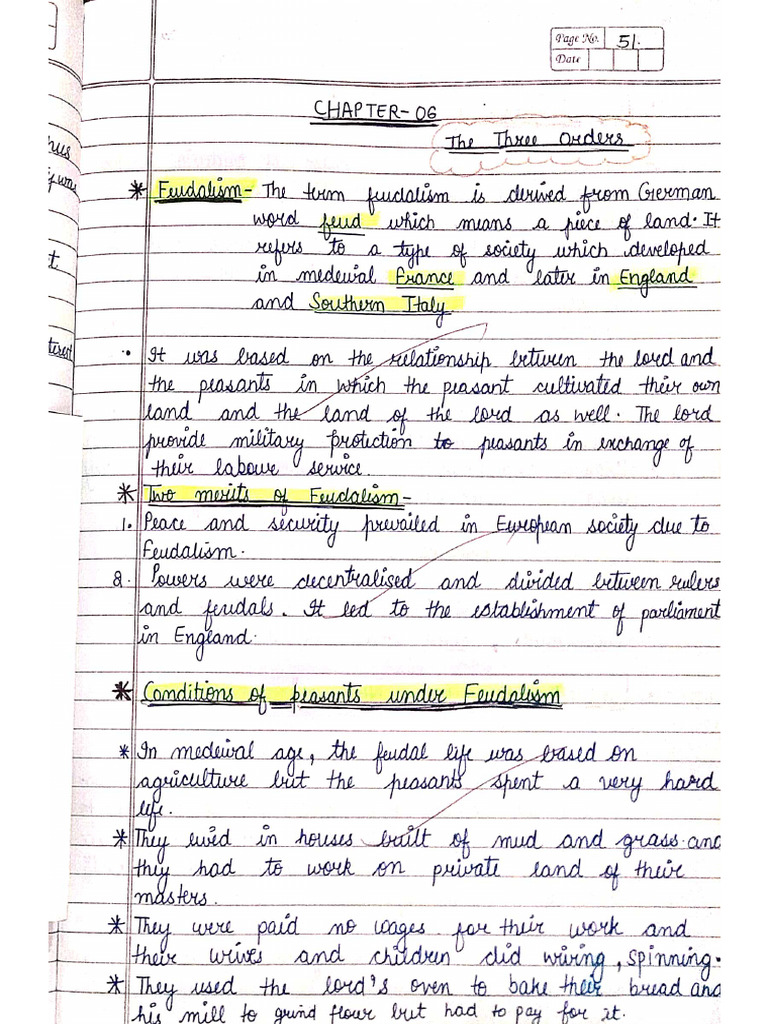 Page No. 51.
Date
CHAPTER-06
The Three Orders
* Feudalism- The term feudalism is derived from German
word feud which means a piece of land. It
refers to a type of society which developed
in medewal france and later in England
and Southern Italy.
• It was based on the relationship between the lord and
the peasants in which the peasant cultivated their own
land and the land of the lord as well. The lord
provide military protiction to peasants in exchange of
their labour service.
* Two merits of Feudalism-
1. Peace and security prevailed in European society due to
Feudalism.
2. Powers were decentralised and divided between rulers
and feudals. It led to the establishment of parliament
in England.
* Conditions of peasants under Feudalism
* In medewal age, the feudal life was based on
agriculture but the peasants spent a very hard
life.
* They lived in houses built of mud and grass and
they had to work on private land of their
masters.
* They were paid no wages for their work and
their wives and children did wiring, spinning.
* They used the lord's oven to bake their bread and
his mill to grind flour but had to pay for it.